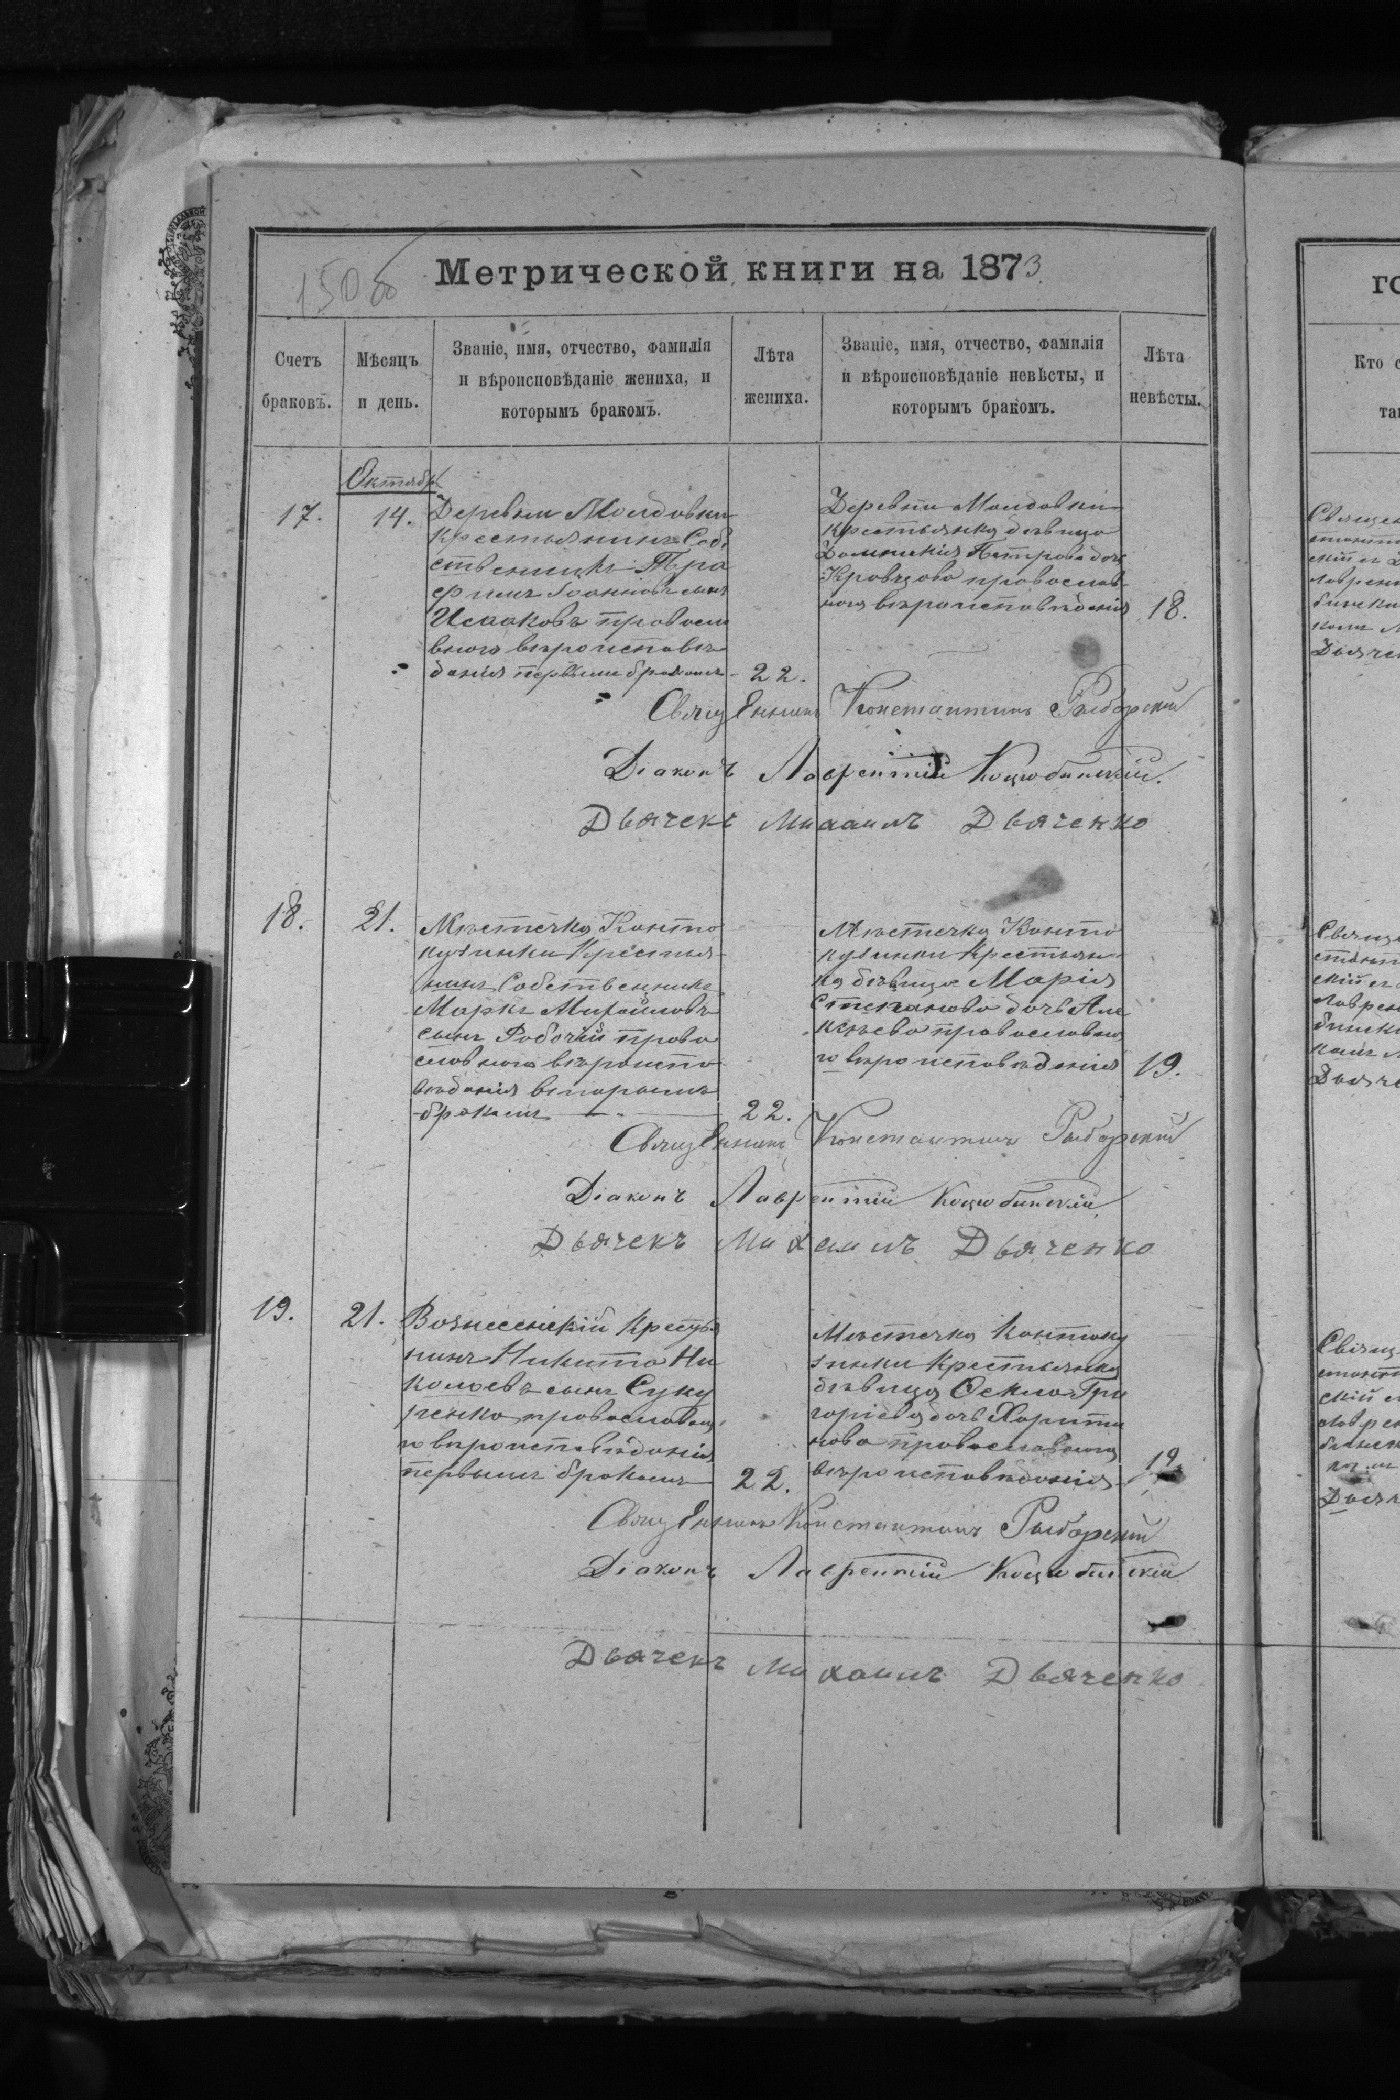 150об
Метрической книги на 1873
Счетъ браковъ.
Мѣсяцъ и день.
Званіе, имя, отчество, фамилія и вѣроисповѣданіе жениха, и которымъ бракомъ.
Лѣта жениха.
Званіе, имя, отчество, фамилія и вѣроисповѣданіе невѣсты, и которымъ бракомъ.
Лѣта невѣсты.
Октябр
17.
14.
Деревни Молдовки
крестьянинъ Соб
ственникъ Тро
фимъ Іоанновъ сынъ
Исааковъ православ
внаго вѣроисповѣ
данія первымъ бракомъ
22.
Деревни Молдовки
крестьянка дѣвица
Домникія Петрова дочь
Кравцова православ
наго вѣроисповѣданія
18.
Священникъ Константинъ
Діаконъ Лаврентій Коцюбинскій.
Дьячекъ Михаилъ Дьяченко
18.
21.
МѣстечкаКанто
кузинки Крестья
нинъ Собственникъ
Марко Михайловъ
сынъ Рабочій право
славнаго вѣроиспо
вѣданія вторымъ
бракомъ
22.
Мѣстечка Канто
кузинки Крестьян
ка дѣвица Марія
Степанова дочь Але
ксѣева православна
го вѣроисповѣданія
19.
Священникъ Константинъ
Діаконъ Лаврентій Коцюбинскій
Дьячекъ Михаилъ Дьяченко
19.
21.
Вознесенскій Крестья
нинъ Никита Ни
колаевъ сынъ Суку
ренко православна
го вѣроисповѣданія
первымъ бракомъ
22.
Мѣстечка Кантаку
зинки Крестьянка
дѣвица Оекла Гри
горіева дочь Харити
нова православнаго
вѣроисповѣданія
19.
Священникъ Константинъ
Діаконъ Лаврентій Коцюбинскій
Дьячекъ Михаилъ Дьяченко